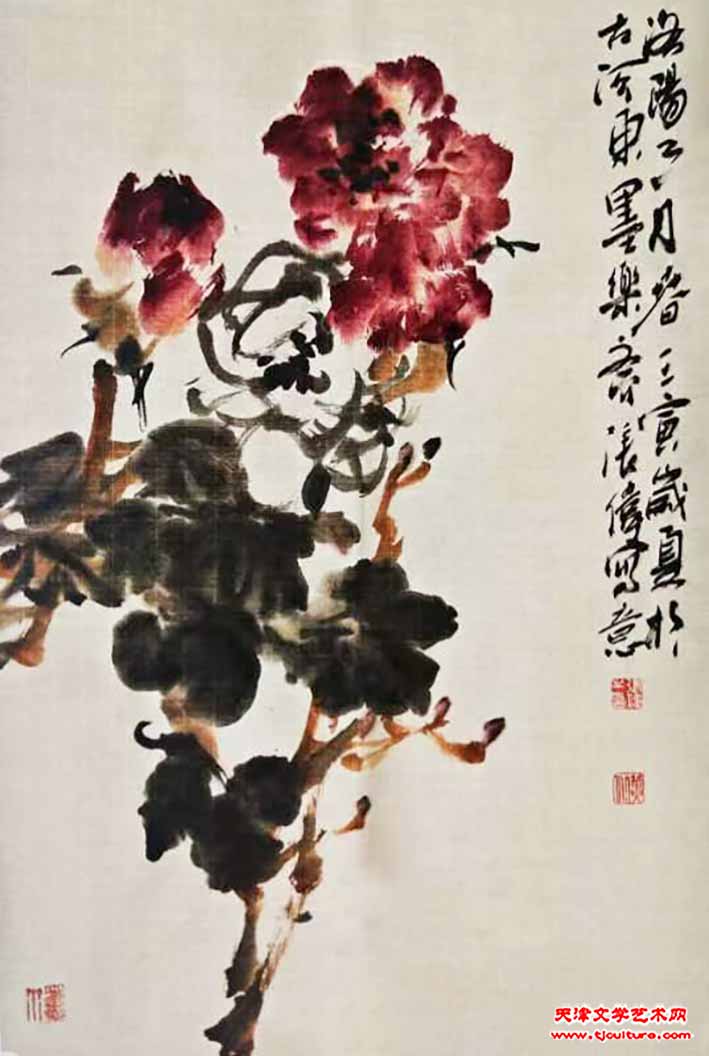 洛陽二月春 壬寅歲夏於
古河東墨樂齋張偉寫意
天津文学艺术网
www.tjculture.com